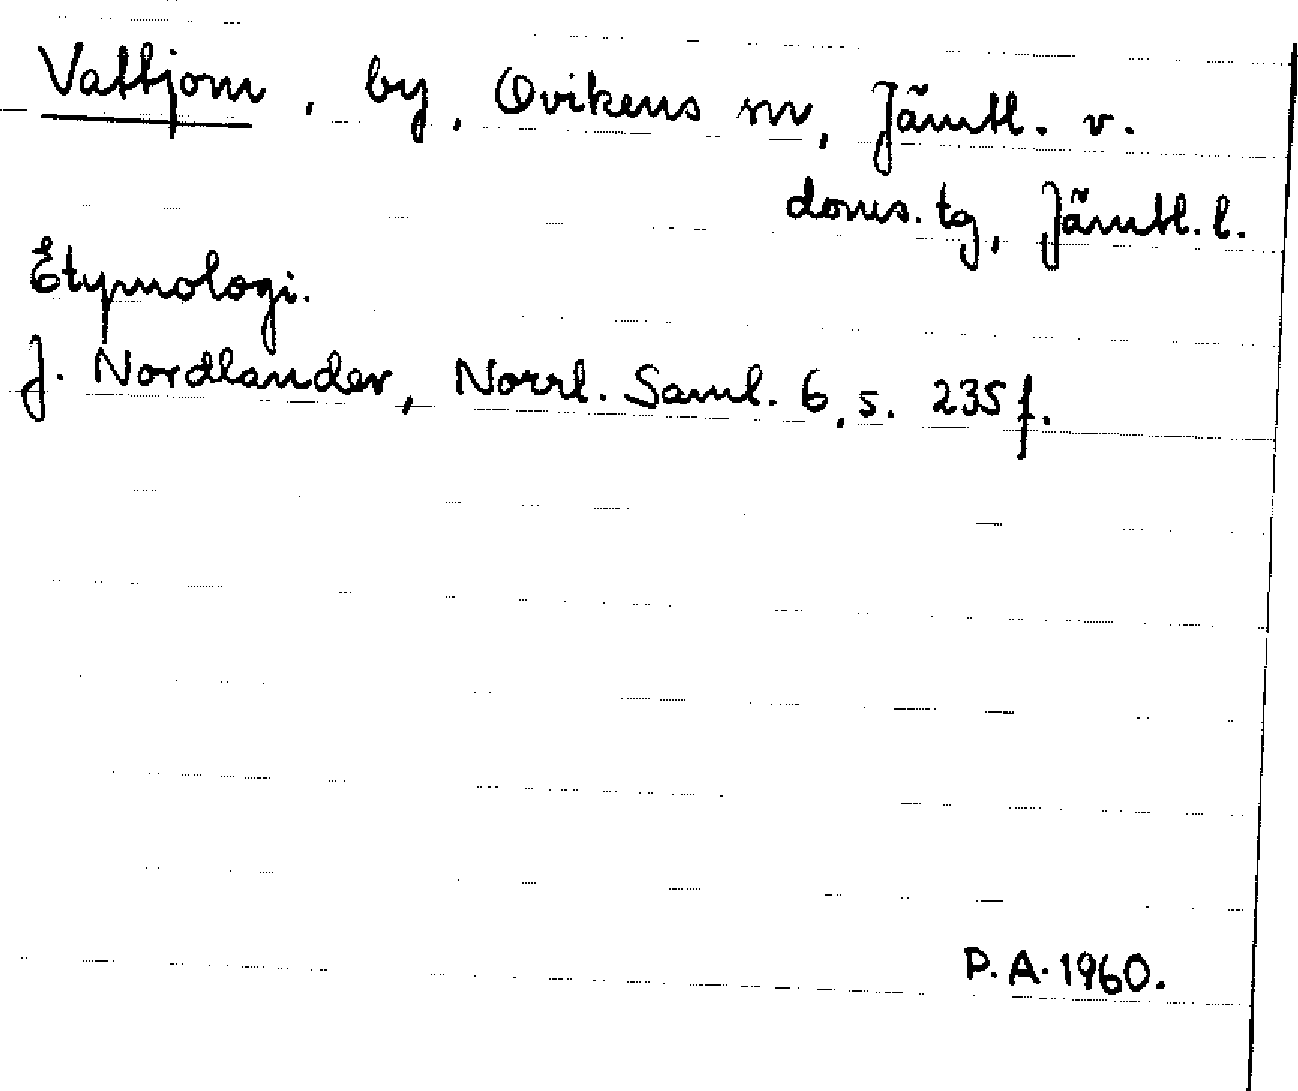 Vattjom, by, Ovikens sn, Jämtl. v.
doms. tg, Jämtl. l.
Etymologi.
J. Nordlander, Norrl. Saml. 6, s. 235 f.
P. A. 1960.